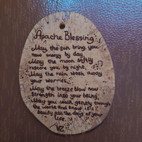 Apache Blessing
May the sun bring you
new energy by day.
May the moon softly
restore you by night.
May the rain wash away
your worries.
May the breeze blow new
strength into your being.
May you walk gently through
the world and know its
beauty all the days of your
life.